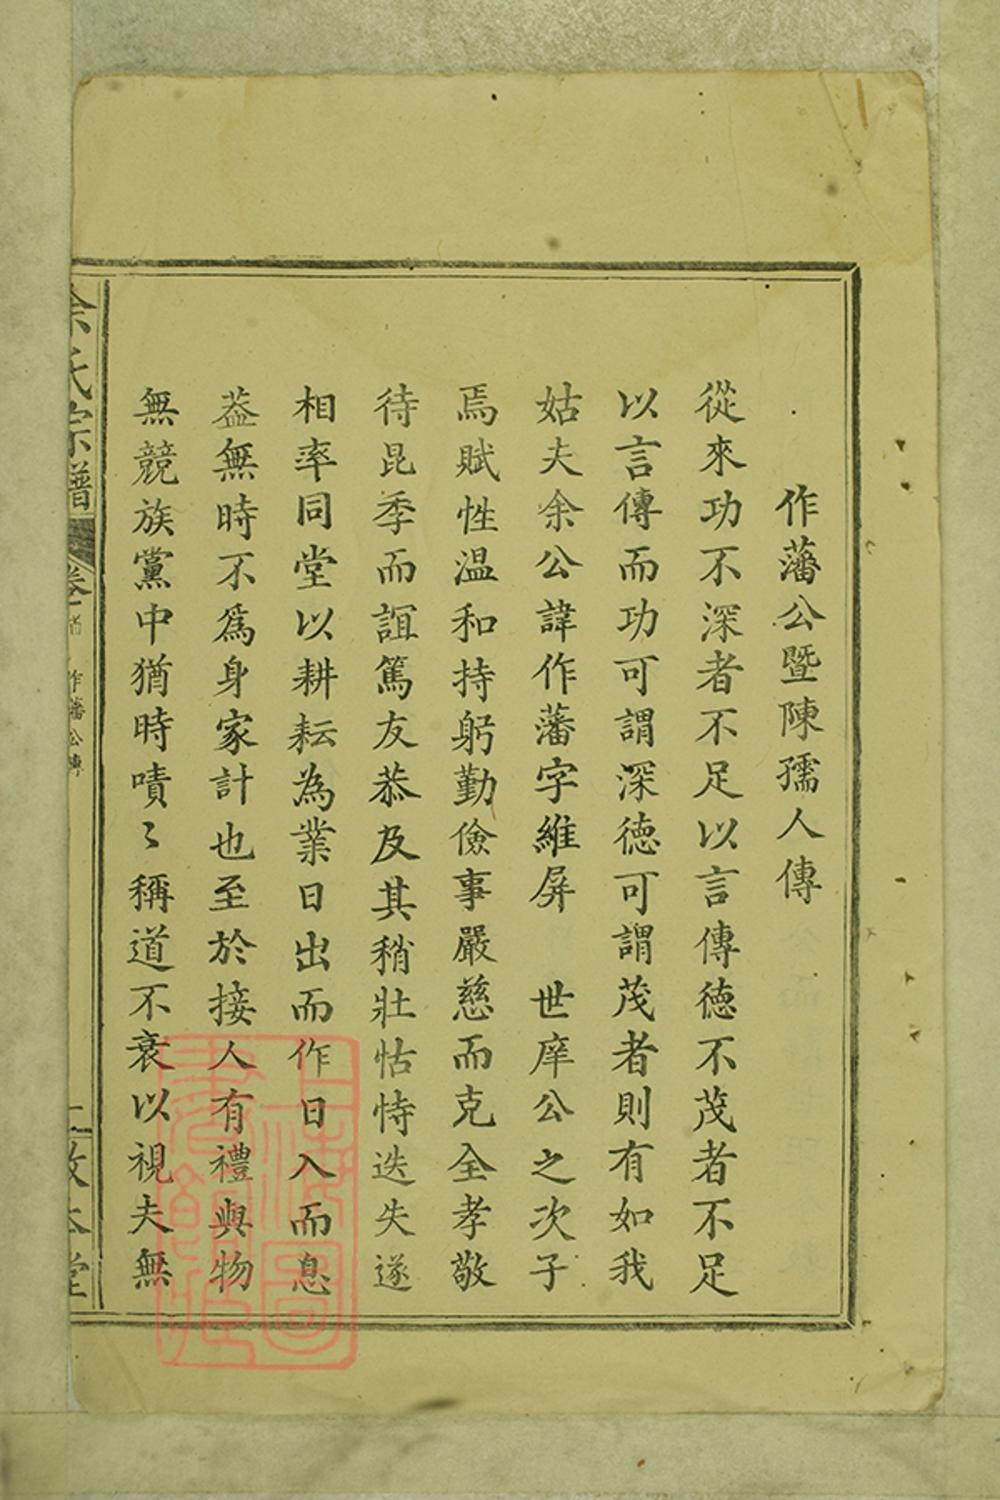 作藩公暨陳孺人傳
從來功不深者不足以言傳德不茂者不足
以言傳而功可謂深德可謂茂者則有如我
姑夫余公諱作藩字維屏 世庠公之次子
焉賦性温和持躬勤儉事嚴慈而克全孝敬
待昆季而誼篤友恭及其稍壯怙恃迭失遂
相率同堂以耕耘為業日出而作日入而息
葢無時不爲身家計也至於接人有禮與物
無競族黨中猶時嘖〻稱道不衰以視夫無
余氏宗譜 卷首 作藩公傳 二 敦本堂
上海圖書館藏